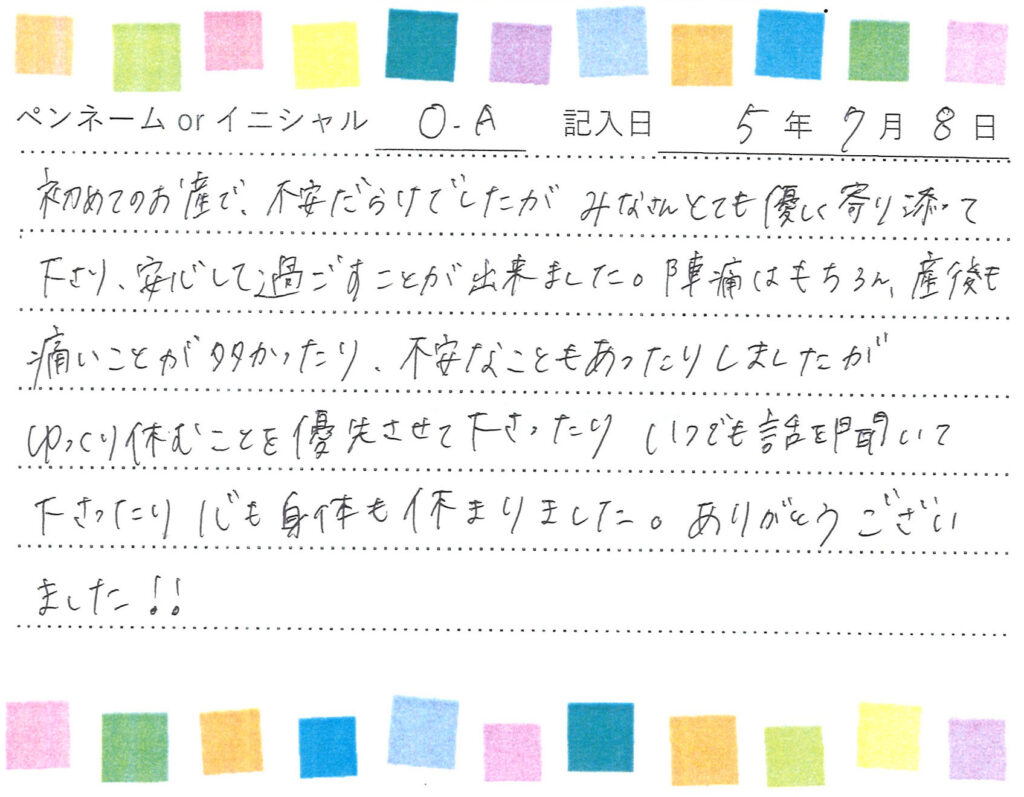 ペンネーム or イニシャル O-A 記入日 5年 7月 8日
初めてのお産で、不安だらけでしたが みなさんとても優しく寄り添って
下さり、安心して過ごすことが出来ました。陣痛はもちろん、産後も
痛いことが多かったり、不安なこともあったりしましたが
ゆっくり休むことを優先させて下さったり いつでも話を聞いて
下さったり 心も身体も休まりました。ありがとうござい
ました!!